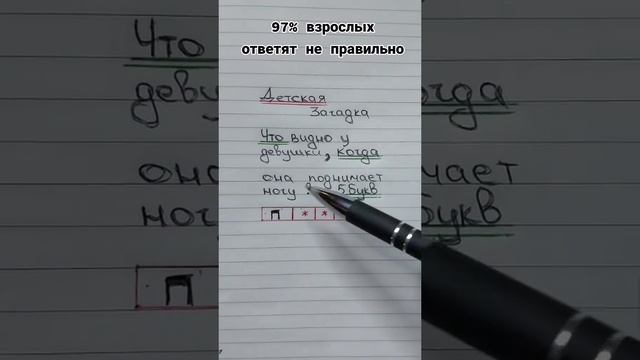 97% взрослых
ответят не правильно
Детская
Загадка
Что видно у
девушки, когда
она поднимает
ногу ? 5 букв
П * *